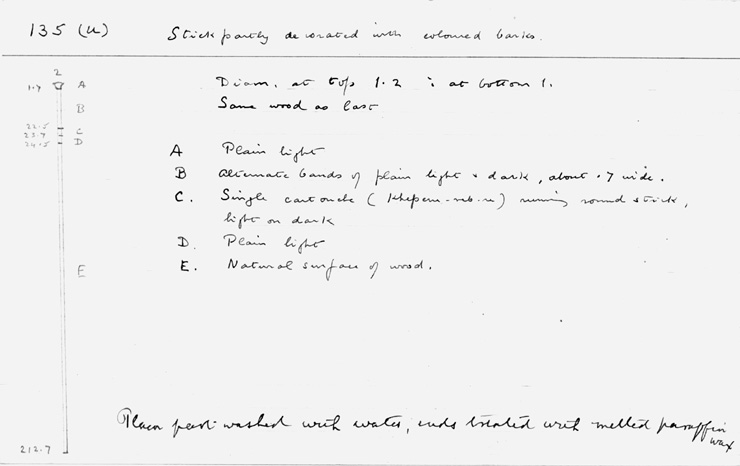 135 (u)   Stick partly decorated with coloured barks.
Diam. at top 1.2 : at bottom 1.
Same wood as last
2
1.7   A
B
22.5   C
23.7   D
24.5
E
212.7
A   Plain light
B   Alternate bands of plain light & dark, about .7 wide.
C.   Single cartouche (Kheperu-neb-re) running round stick,
light on dark
D.   Plain light
E.   Natural surface of wood.
Plain part washed with water, ends treated with melted paraffin
wax